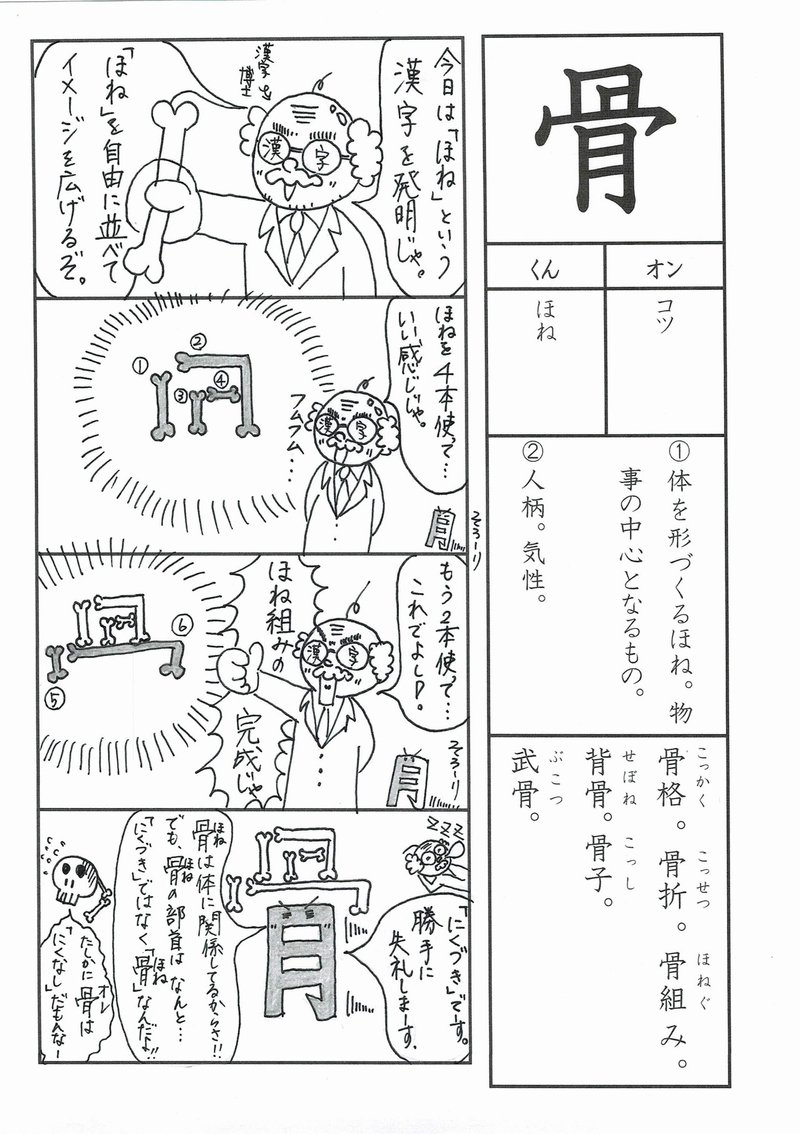 骨
オン
くん
コツ
ほね
①体を形づくるほね。物
事の中心となるもの。
②人柄。気性。
こっかく こっせつ ほねぐ
骨格。骨折。骨組み。
せぼね こっし
背骨。骨子。
ぶこつ
武骨。
今日は「ほね」という
漢字を発明じゃ。
漢字
博士
漢 字
「ほね」を自由に並べて
イメージを広げるぞ。
ほねを4本使って…
いい感じじゃ。
漢 字
フムフム…
①
②
③
④
そろ〜り
もう2本使って…
これでよし!。
漢 字
ほね組みの
完成じゃ
⑤
⑥
そろ〜り
ZZZ
「にくづき」でーす。
勝手に
失礼しまーす。
ほね
骨は体に関係してるからさ!!
ほね
でも、骨の部首はなんと…
ほね
「にくづき」ではなく「骨」なんだよ!!
オレ
たしかに骨は
「にくなし」だもんなー